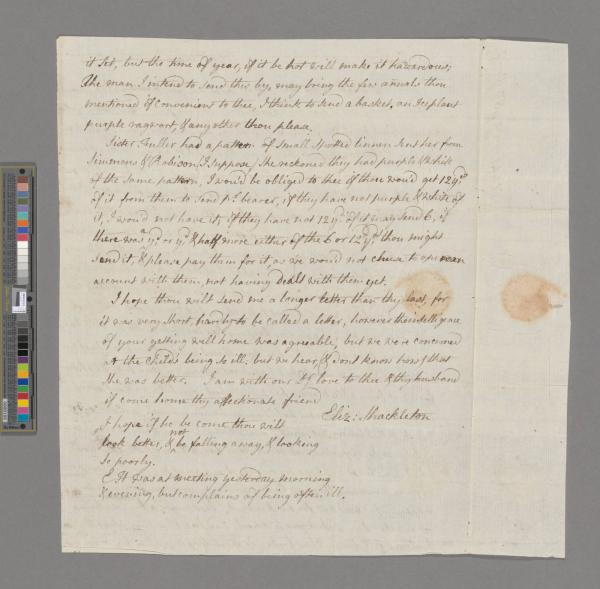 it set, but the time of year, if it be hot will make it hazardous;
The man I intend to send this by, may bring the few annuals thou
mentioned if convenient to thee, I think to send a basket. an Iceplant
purple ragwort, & any other thou please.
Sister Fuller had a pattern of small spotted linnen sent her from
Simmons & Robison, I suppose, she reckoned they had purple & white
of the same pattern, I wou'd be obliged to thee if thou would get 12 yds
of it from them to send pr bearer, if they have not purple & white of
it, I would not have it, if they have not 12 yds of it may send 6, if
there was a yd or yd & half more either of the 6 or 12 yds thou might
send it, & please pay them for it, as we would not chuse to open an
account with them, not having dealt with them yet.
I hope thou wilt send me a longer letter than thy last, for
it was very short, hardly to be called a letter, however the intelligence
of your getting well home was agreeable, but we were concerned
at the childs being so ill: but we hear, (I dont know how) that
she was better. I am with our Dr love to thee & thy husband
if come home thy affectionate friend
Eliz: Shackleton
I hope if he be come thou wilt
look better, & not be falling away, & looking
so poorly.
E H was at meeting yesterday morning
& evening, but complains of being often ill.